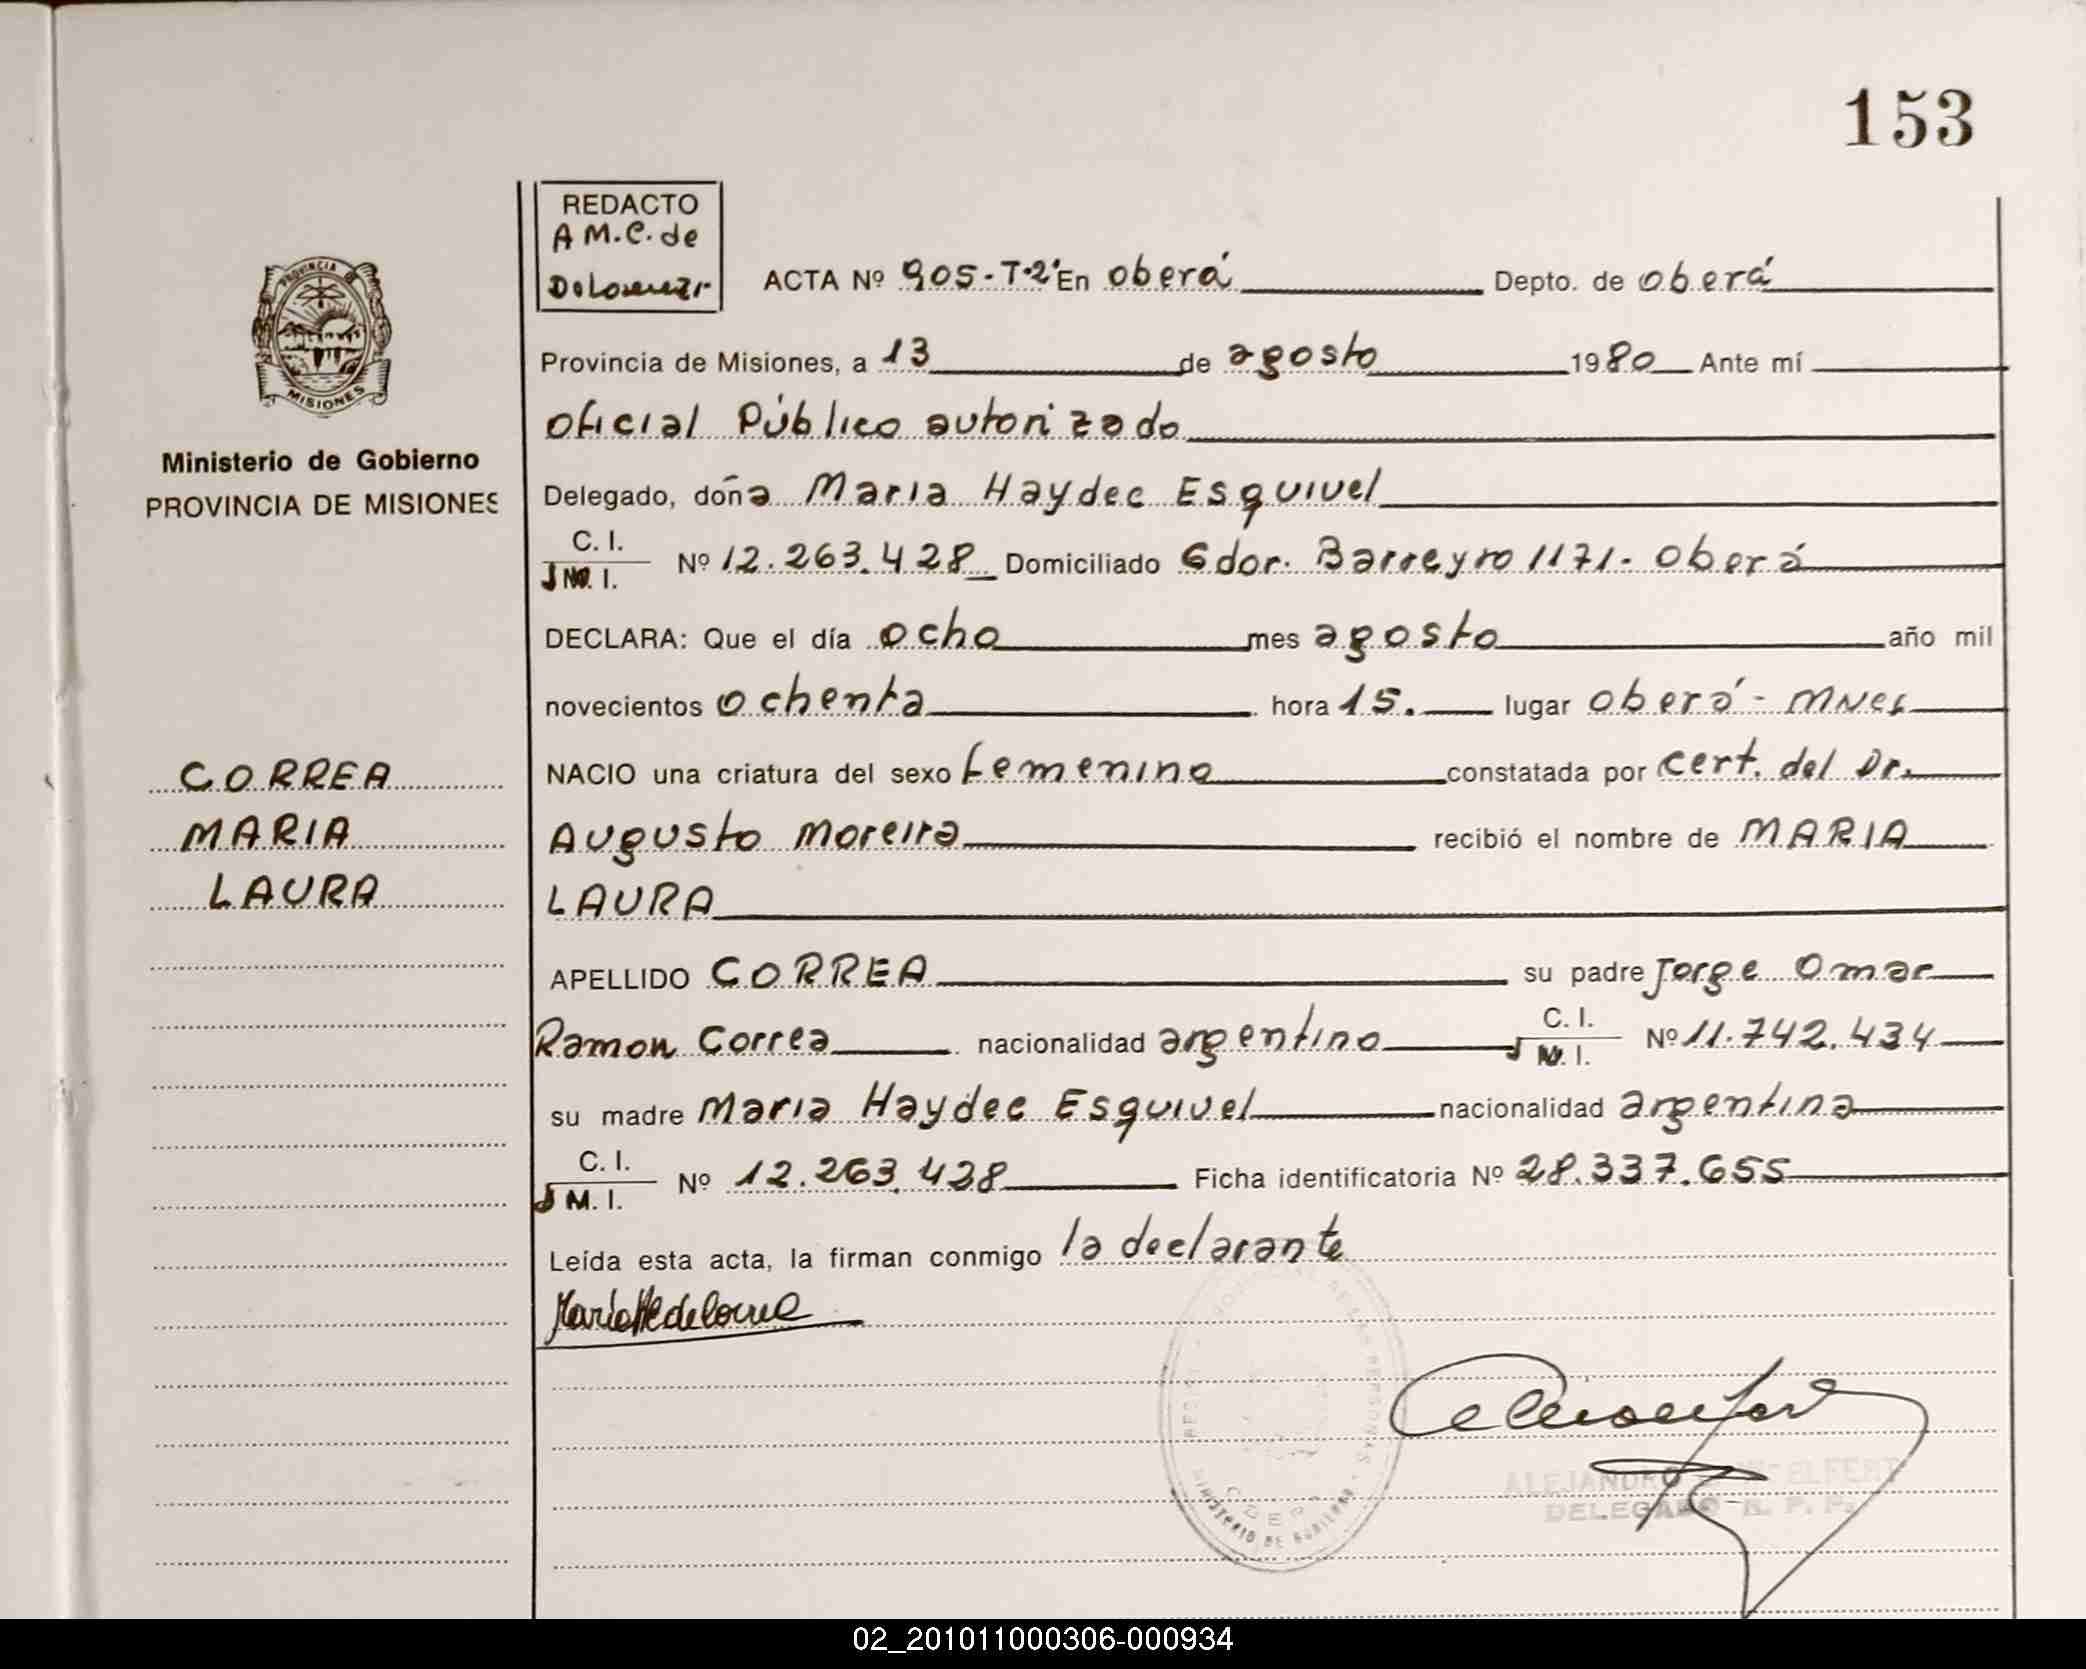 153
REDACTO
A M.C. de
ACTA Nº 905-T-2º En Oberá Depto. de Oberá
Provincia de Misiones, a 13 de agosto 1980 Ante mí
Oficial Público autorizado
Delegado, doña Maria Haydee Esquivel
C. I.
M. I.
Nº 12.263.428 Domiciliado Gdor. Barreyro 1171. Oberá
DECLARA: Que el día ocho mes agosto año mil
novecientos ochenta hora 15. lugar Oberá - Mnes
NACIO una criatura del sexo femenino constatada por cert. del Dr.
Augusto Moreira recibió el nombre de MARIA
LAURA
APELLIDO CORREA su padre Jorge Omar
Ramon Correa nacionalidad argentino C. I. M. I. Nº 11.742.434
su madre Maria Haydee Esquivel nacionalidad argentina
C. I.
M. I.
Nº 12.263.428 Ficha identificatoria Nº 28.337.655
Leída esta acta, la firman conmigo la declarante
PROVINCIA DE
MISIONES
Ministerio de Gobierno
PROVINCIA DE MISIONES
CORREA
MARIA
LAURA
MINISTERIO DE GOBIERNO
ALEJANDRO
DELEGADO R. P. P.
02_201011000306-000934